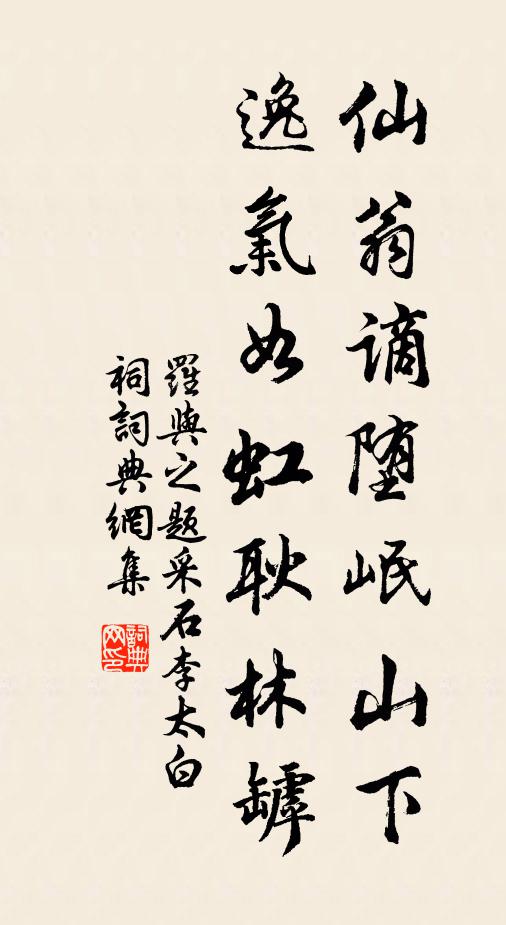 仙翁謫堕岷山下
逸氣如虹耿林罅
羅與之題采石李太白
祠詞典網集
詞典网印